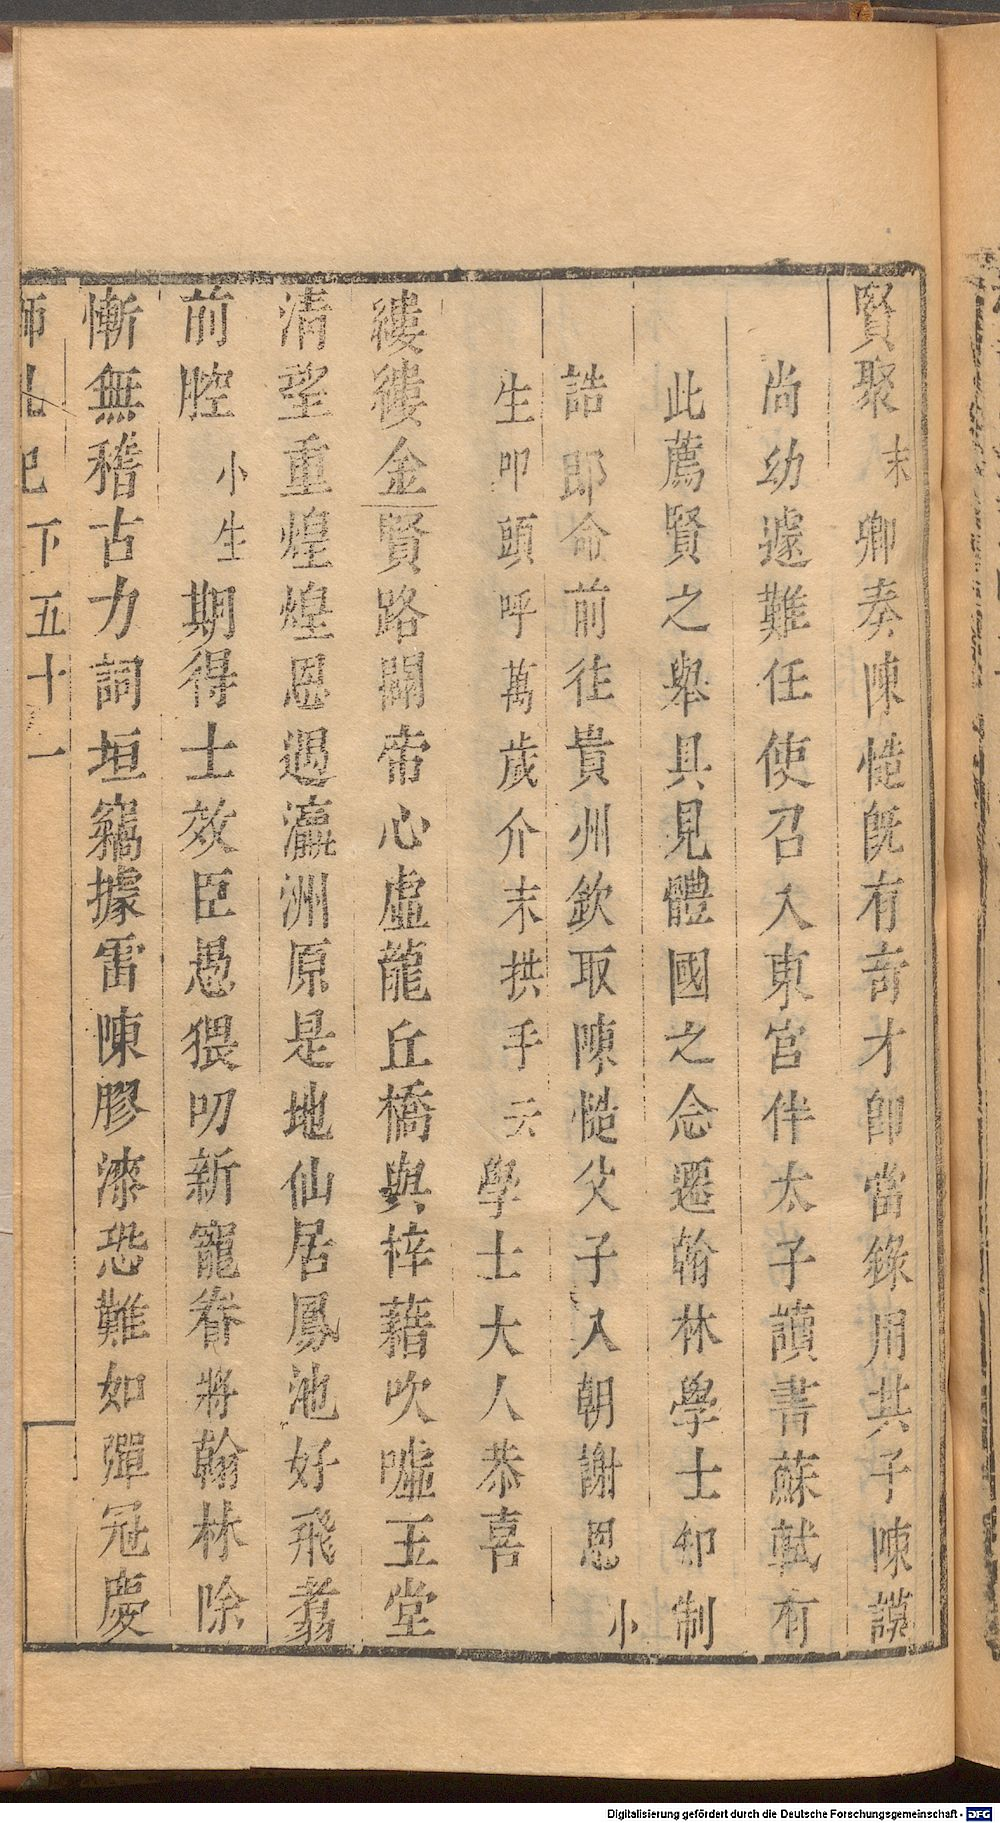 賢聚末卿奏陳慥既有奇才即當錄用共子陳謨
尚幼遽難任使召入東宮伴太子讀書蘇軾有
此薦賢之舉具見體國之念遷翰林學士知制
誥即命前往貴州欽取陳慥父子入朝謝恩小
生叩頭呼萬歲介末拱手云學士大人恭喜
縷縷金賢路闢帝心虛龍丘橋與梓藉吹噓玉堂
清望重煌煌恩遇瀛洲原是地仙居鳳池好飛翥
前腔小生期得士效臣愚猥叨新寵眷將翰林除
慚無稽古力詞垣竊據雷陳膠漆恐難如彈冠慶
獅吼記下五十一
Digitalisierung gefördert durch die Deutsche Forschungsgemeinschaft - DFG